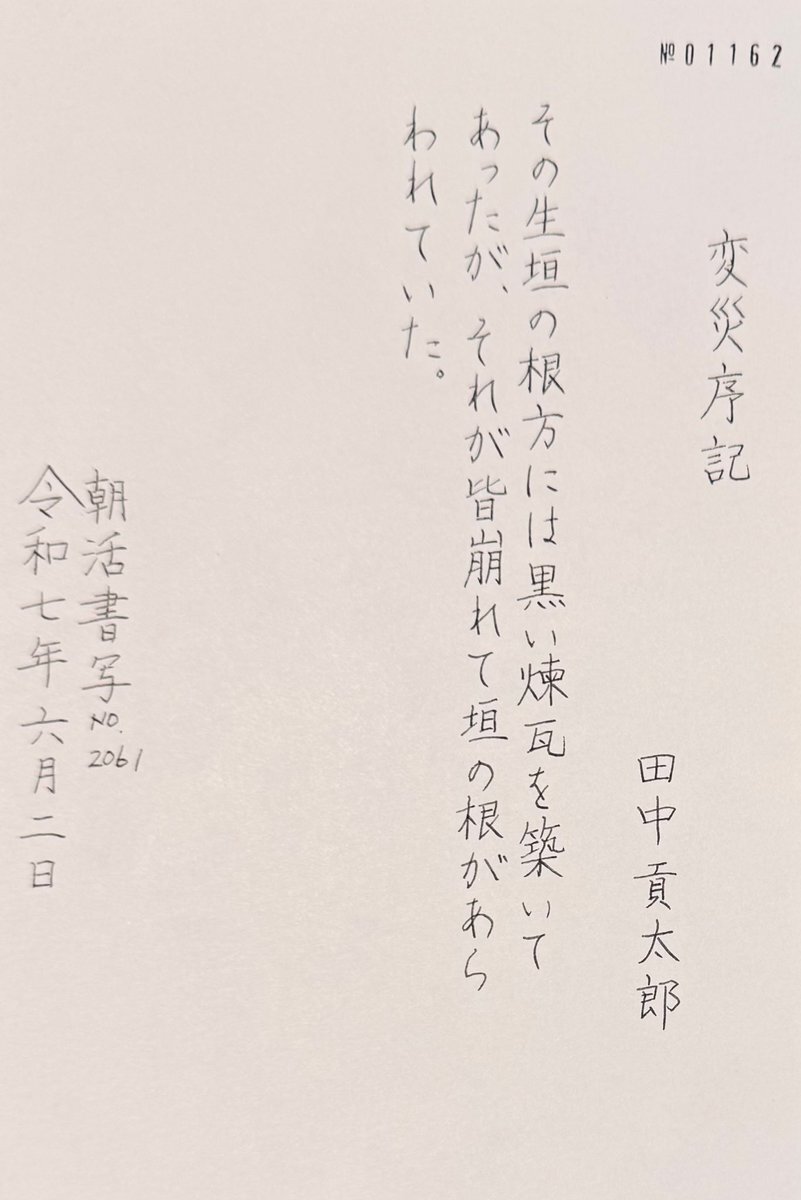 №01162
変災序記
田中貢太郎
その生垣の根方には黒い煉瓦を築いて
あったが、それが皆崩れて垣の根があら
われていた。
朝活書写NO.2061
令和七年六月二日